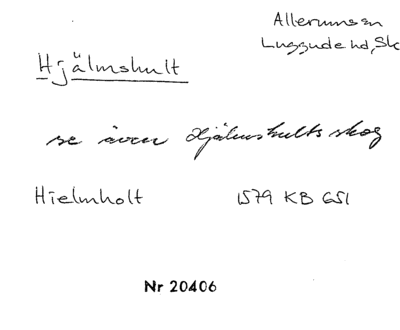 Allerumssn
Luggude hd, Sk
Hjälmshult
se även Hjälmshults skog
Hielmholt 1579 KB 651
Nr 20406